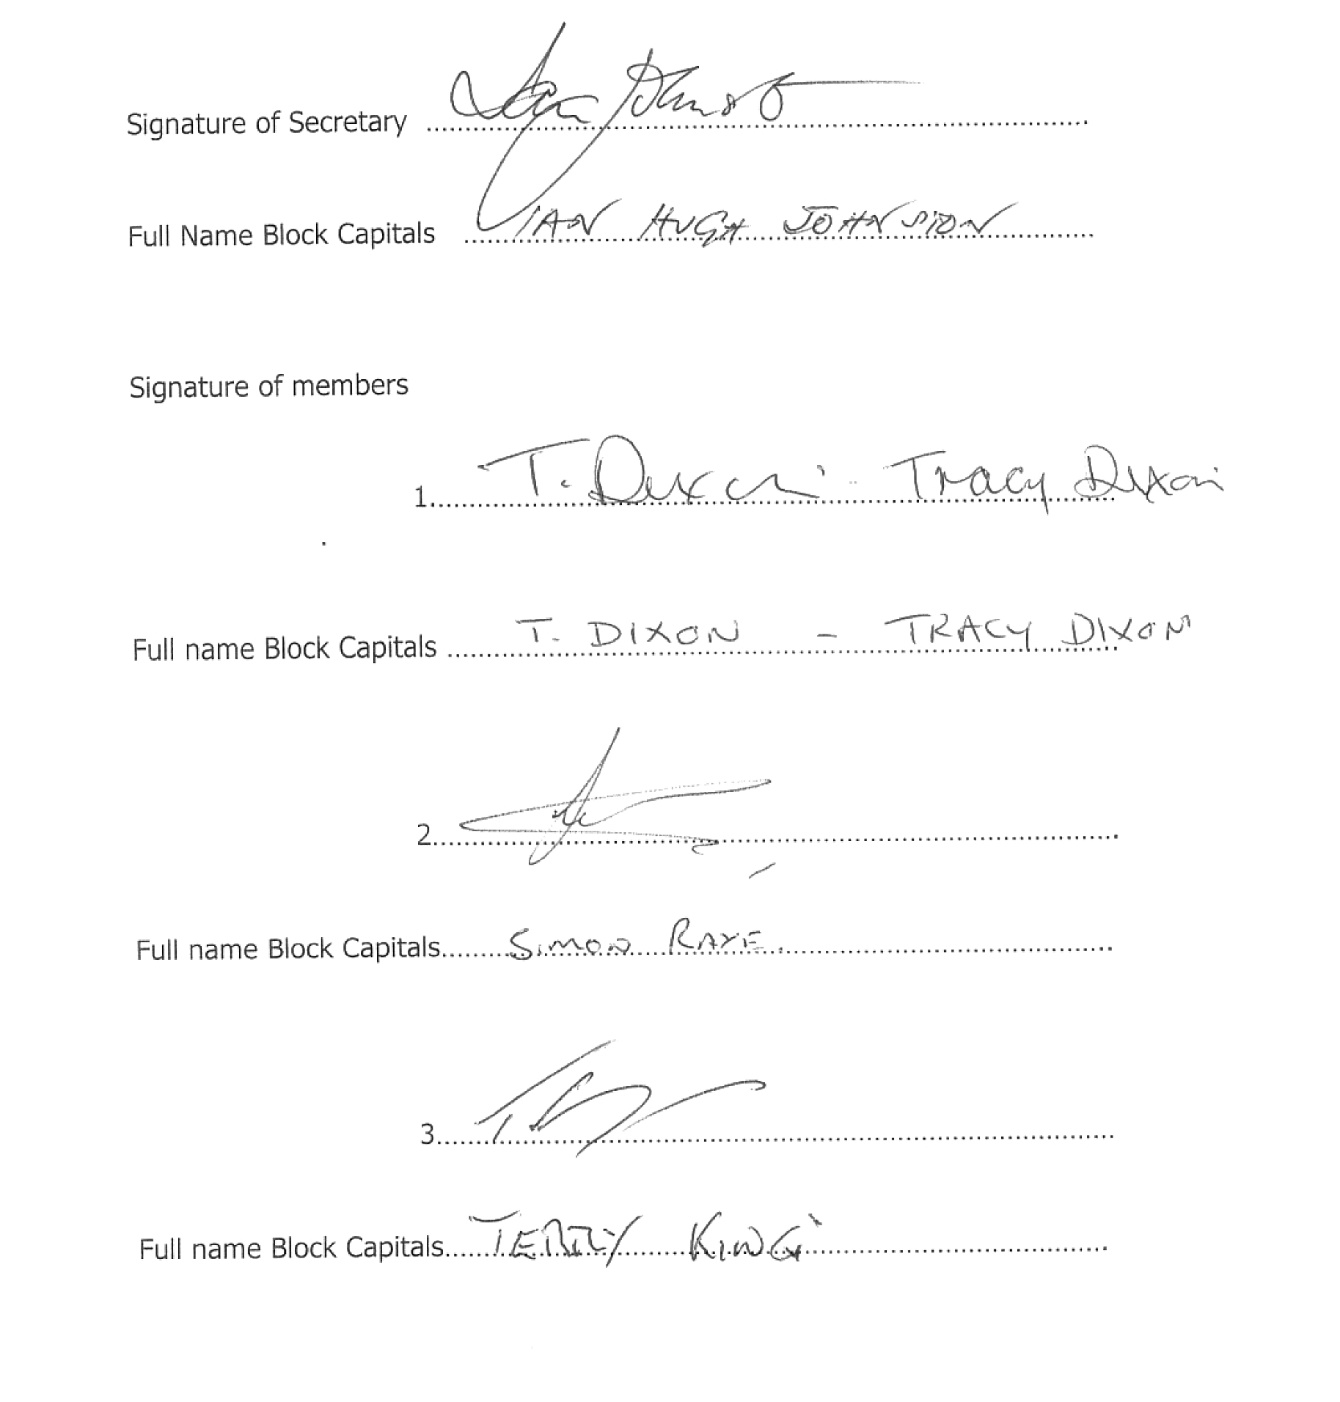 Signature of Secretary Ian Johnston
Full Name Block Capitals IAN HUGH JOHNSTON
Signature of members
1. T. Dixon Tracy Dixon
Full name Block Capitals T. DIXON - TRACY DIXON
2.
Full name Block Capitals SIMON RAYE.
3.
Full name Block Capitals TERRY KING